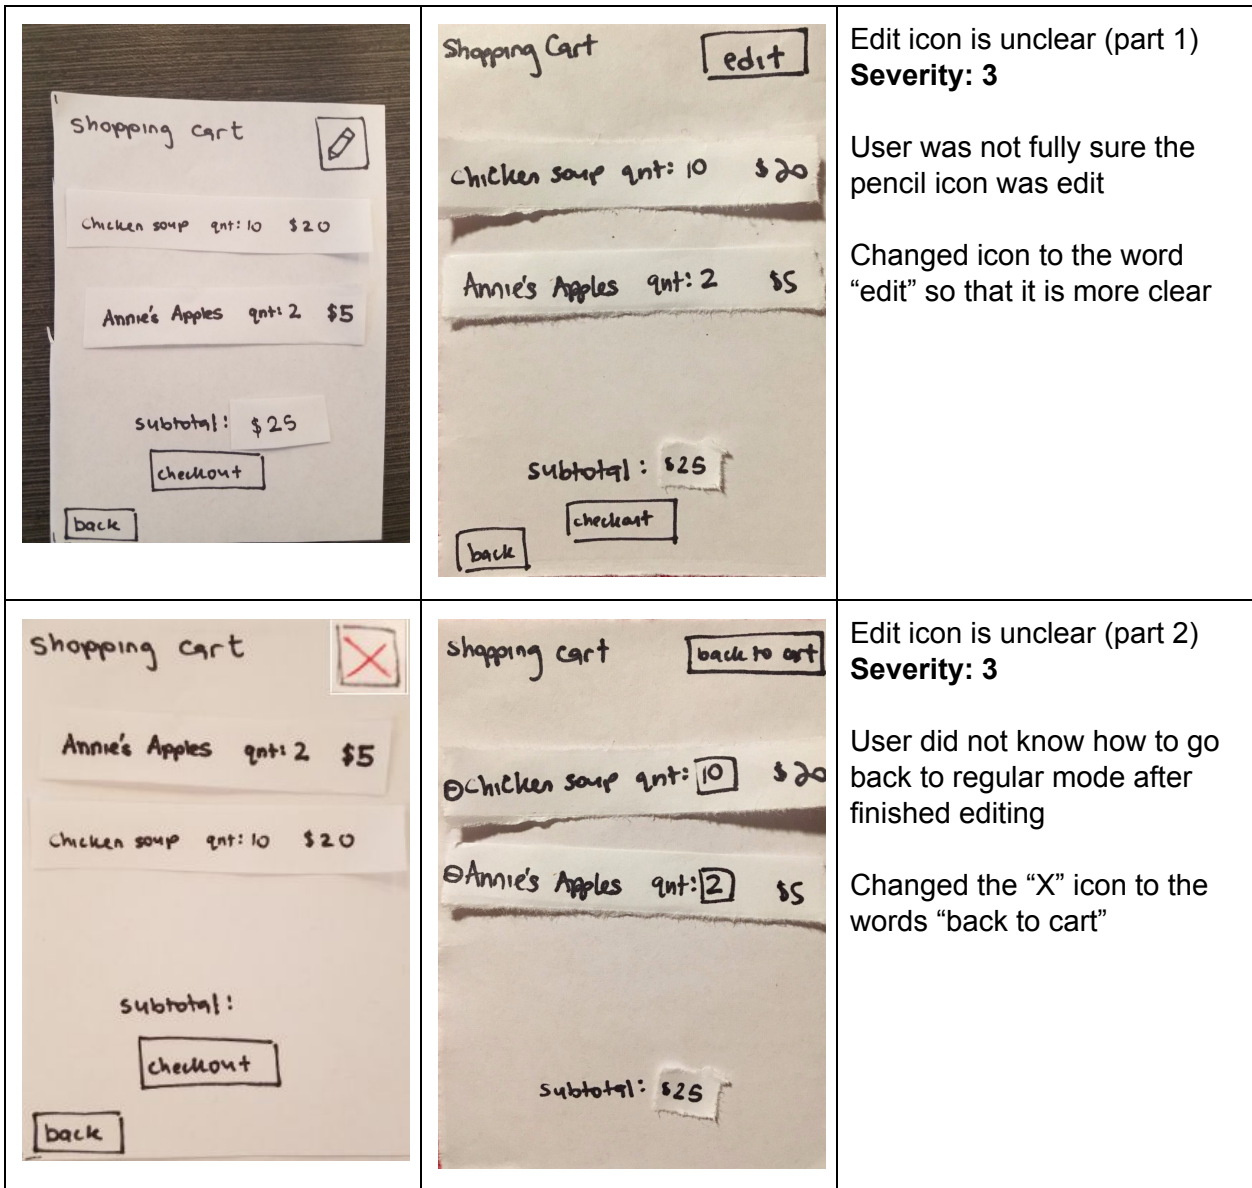 Shopping cart
Chicken soup qnt: 10 $20
Annie's Apples qnt: 2 $5
subtotal: $25
checkout
back
Shopping Cart edit
Chicken soup qnt: 10 $20
Annie's Apples qnt: 2 $5
subtotal: $25
checkout
back
Edit icon is unclear (part 1)
Severity: 3
User was not fully sure the
pencil icon was edit
Changed icon to the word
“edit” so that it is more clear
Shopping cart
Annie's Apples qnt: 2 $5
Chicken soup qnt: 10 $20
subtotal:
checkout
back
Shopping cart back to cart
Chicken soup qnt: 10 $20
Annie's Apples qnt: 2 $5
subtotal: $25
Edit icon is unclear (part 2)
Severity: 3
User did not know how to go
back to regular mode after
finished editing
Changed the “X” icon to the
words “back to cart”